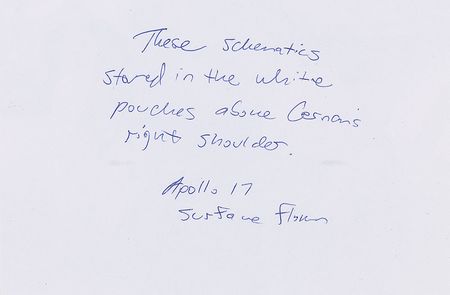 These schematics
stored in the white
pouches above Cernan's
right shoulder.
Apollo 17
surface flown